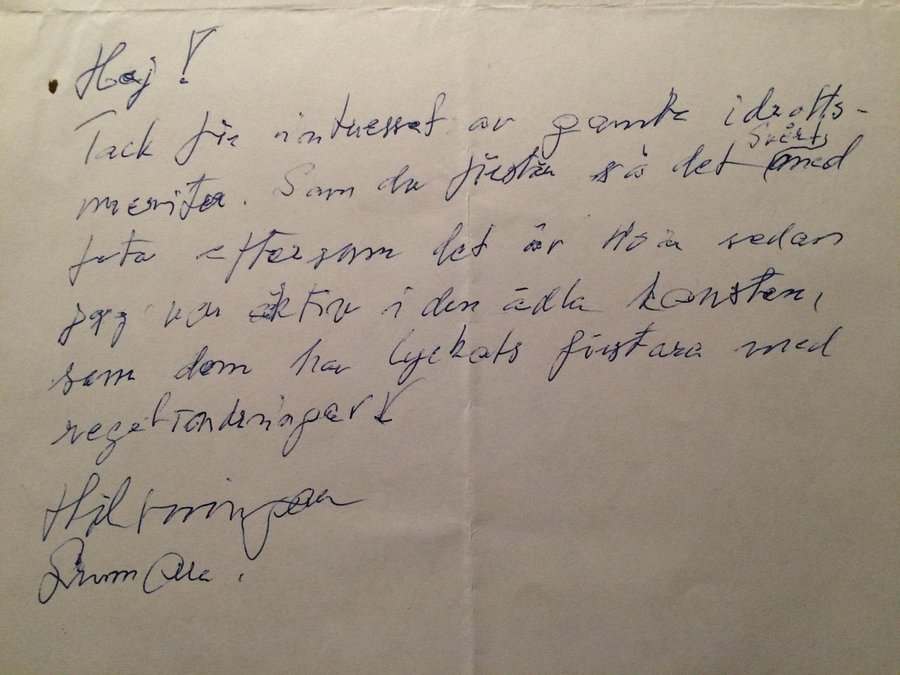 Hej!
Tack för intresset av gamla idrotts-
meriter. Som du förstår så det svårt med
foto eftersom det är år sedan
jag var aktiv i den ädla konsten,
som dom har lyckats förstöra med
regeländringar!
Hälsningar